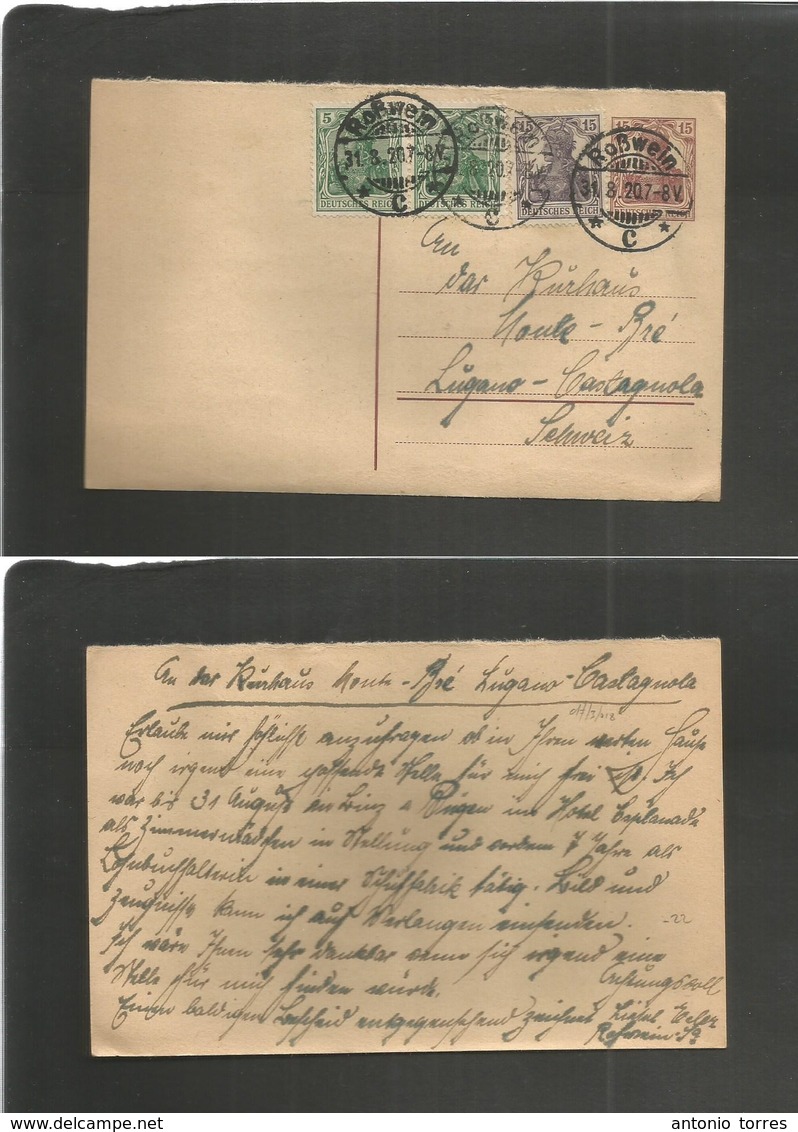 5
15
15
15
DEUTSCHES REICH
DEUTSCHES REICH
Roßwein
31.8.20.7-8V.
C
Roßwein
31.8.20.7-8V.
C
An
das Kurhaus
Monte-Bré
Lugano-Castagnola
Schweiz
An das Kurhaus Monte-Bré Lugano-Castagnola
Erlaube mir höflichst anzufragen ob in Ihrem werten Hause
noch irgend eine passende Stelle für mich frei ist. Ich
war bis 31 August in Binz a Rügen im Hotel Esplanade
als Zimmermädchen in Stellung und vordem 7 Jahre als
Lohnbuchhalterin in einer Schuhfabrik tätig. Bild und
Zeugnisse kann ich auf Verlangen einsenden.
-22
Ich wäre Ihnen sehr dankbar wenn sich irgend eine
Stelle für mich finden würde.
Achtungsvoll
Einen baldigen Bescheid entgegensehend zeichnet
Roßwein
antonio torres